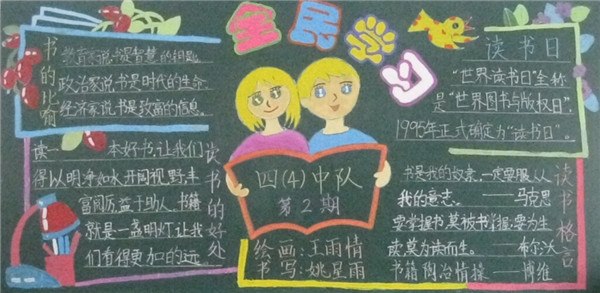 全民学习
书的比喻
教育家说书是智慧的钥匙
政治家说书是时代的生命
经济家说书是致富的信息。
读书的好处
读一 本好书,让我们
得以明净如水,开阔视野,丰
富阅历,益于助人、书籍
就是一盏明灯,让我
们有得更加的远
四(4)中队
第2期
绘画:王雨情
书写:姚星雨
读书日
“世界读书日”全称
是“世界图书与版权日”,
1995年正式确定为“读书日”。
读书格言
书是我的奴隶,一定要服从
我的意志。——马克思
要掌握书,莫被书掌握;要为生
读,莫为读而生。——布尔沃
书籍陶冶情操——傅维